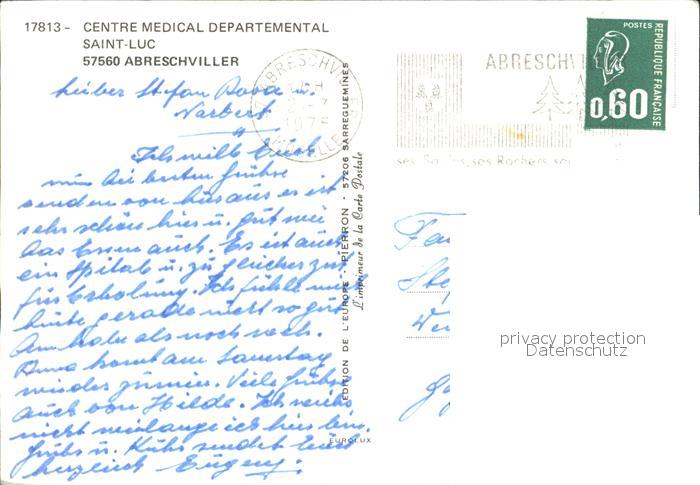 17813 - CENTRE MEDICAL DEPARTEMENTAL
SAINT-LUC
57560 ABRESCHVILLER
POSTES
REPUBLIQUE FRANÇAISE
0,60
ABRESCHVI
ABRESCHVILLER
1975
MOSELLE
ses Rochers
EDITION DE L'EUROPE · PIERRON · 57206 SARREGUEMINES
L'imprimeur de la Carte Postale
EUROLUX
Lieber Stefan u.
Norbert
Ich will Euch
nur die besten Grüße
senden von hier aus es ist
sehr schön hier u. gut wie
das Essen auch. Es ist auch
ein Spital u. zu gleicher zeit
für Erholung. Ich fühle mich
heute gerade nicht so gut
Am hals als noch weh.
Anna kommt am Samstag
wieder zu mir. Viele Grüße
auch von Hilde. Ich weiß
nicht wielange ich hier bin.
Gruß u. Kuß sendet Euch
herzlich Eugen:
privacy protection
Datenschutz